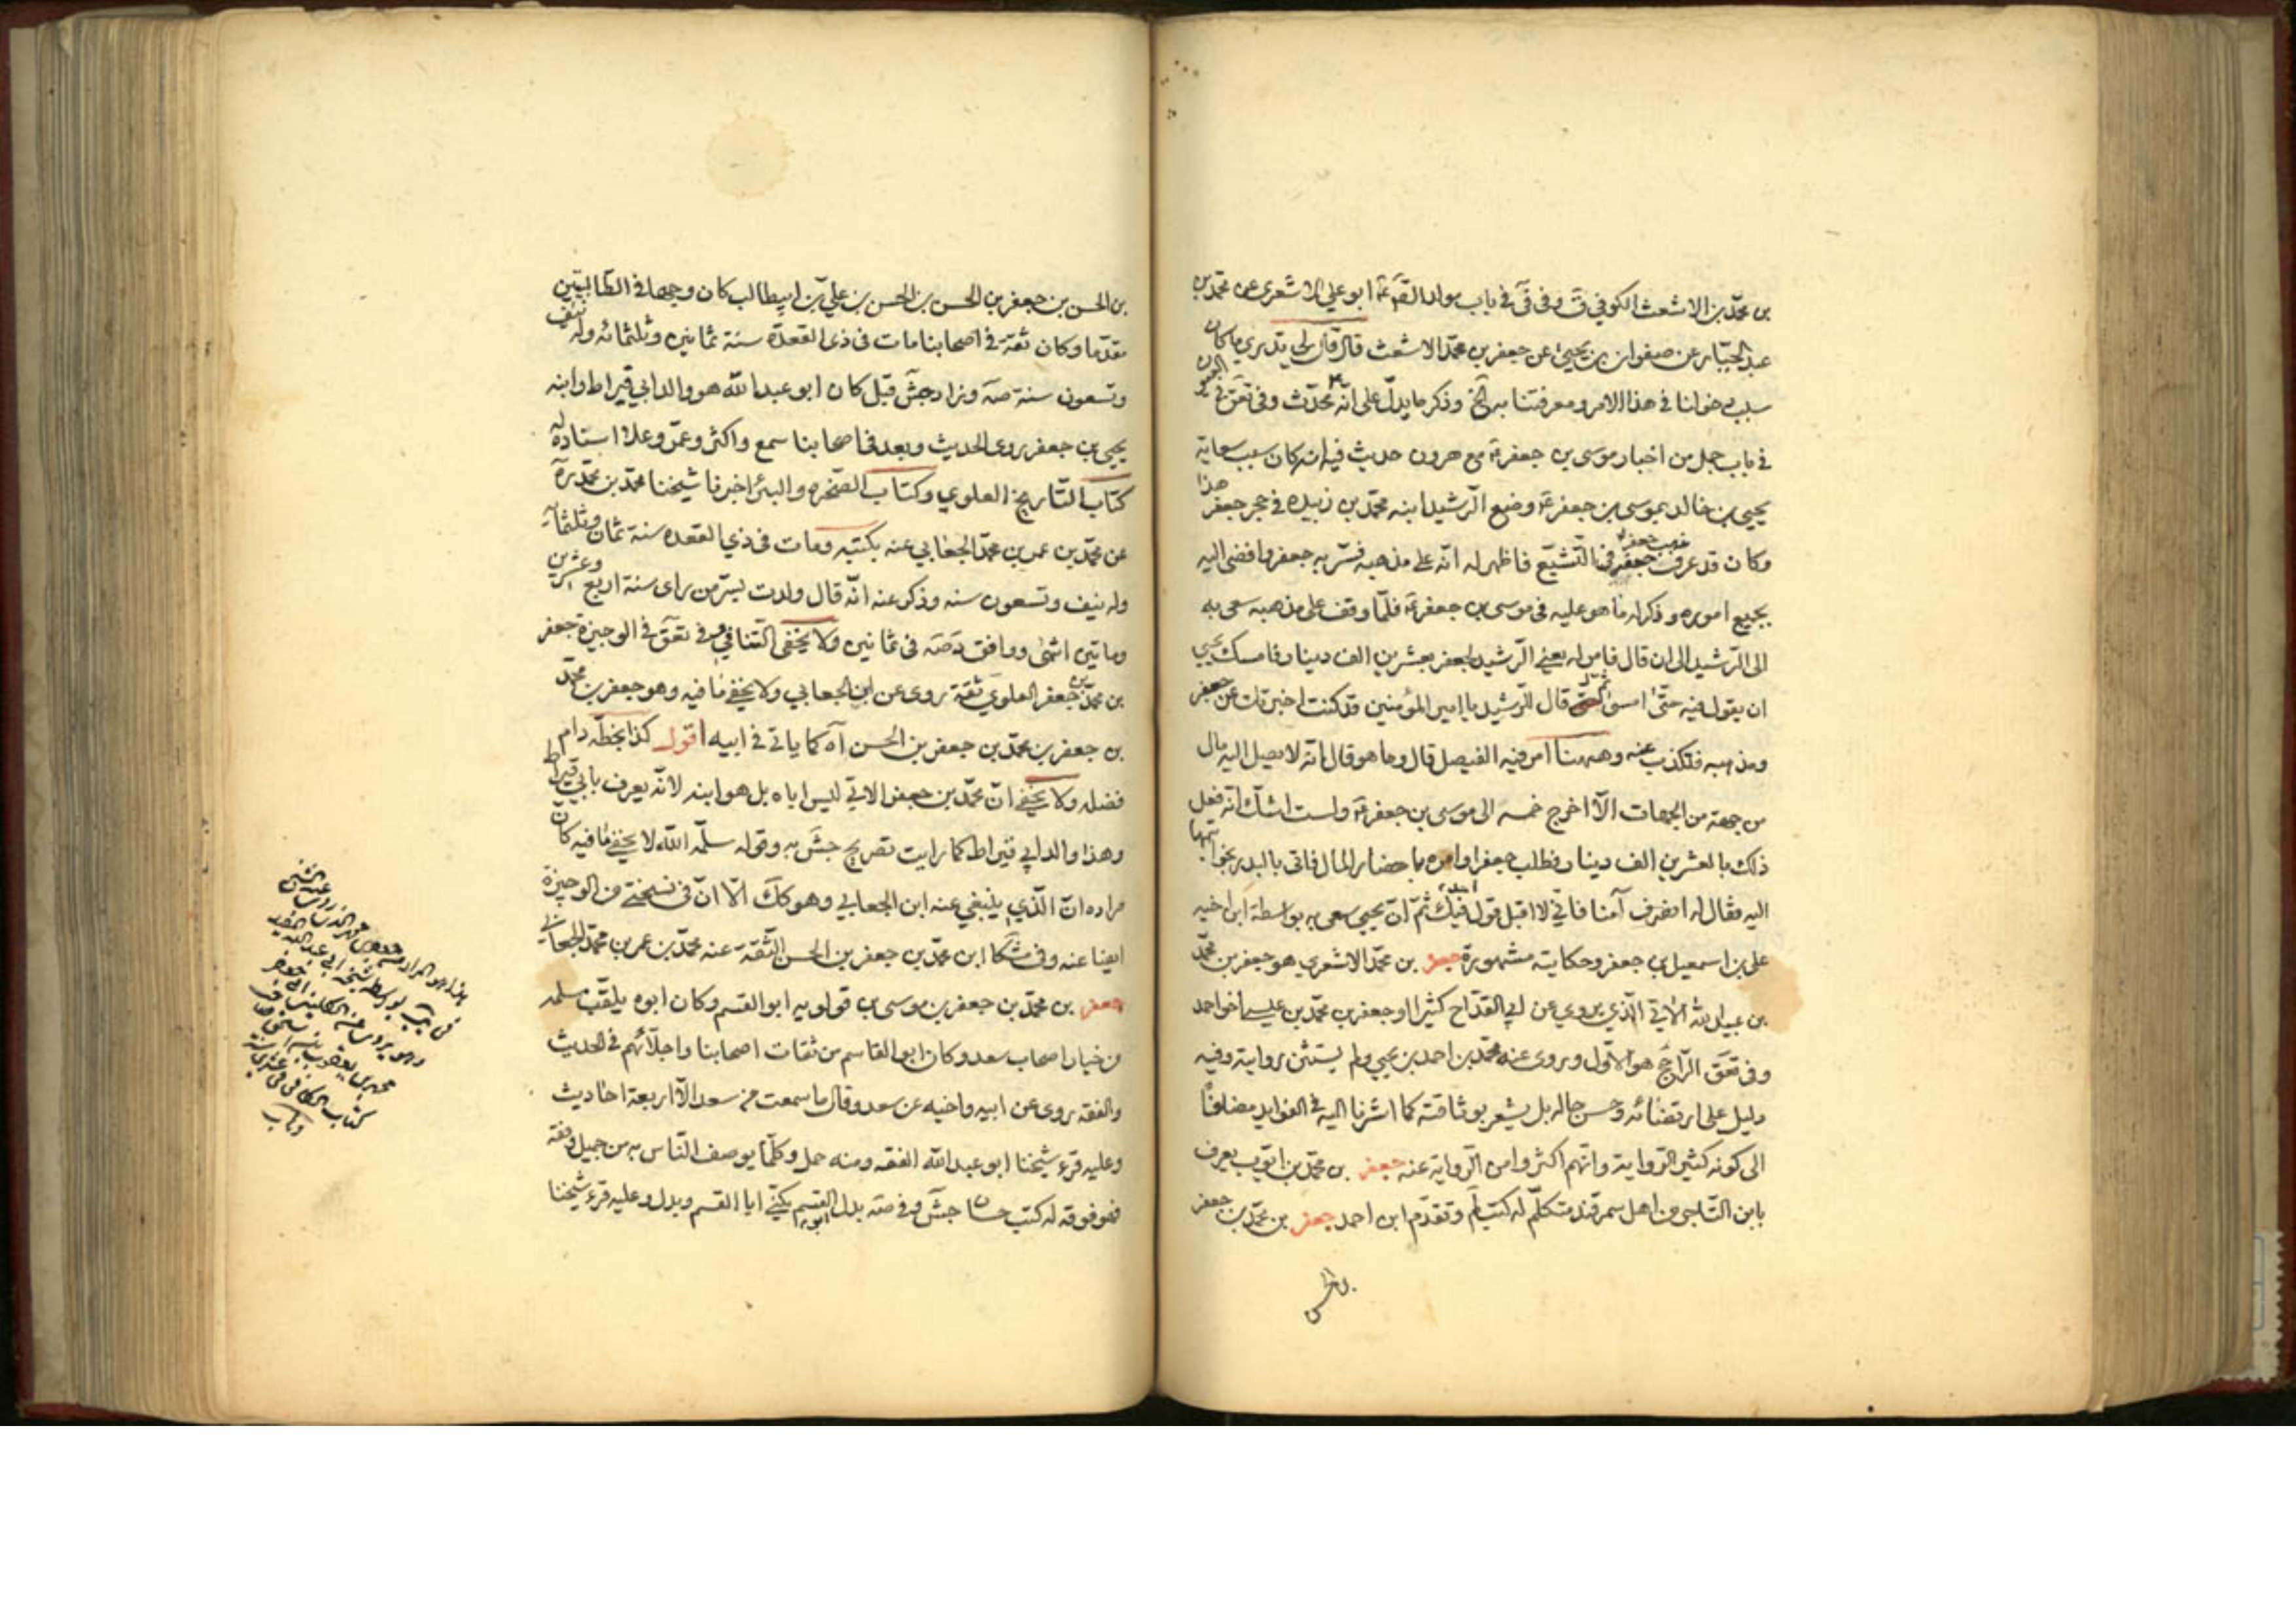 بن محمّد بن الاشعث الكوفي ق وفى في باب مولد الصّ ع ابو علي الاشعرى عن محمّد بن
عبد الجبّار عن صفوان بن يحيى عن جعفر بن محمّد الاشعث قال قال لى تدرى ما كان
سبب دخولنا في هذا الامر و معرفتنا به الخ وذكر ما يدلّ على انّه محدّث وفى تعق في العيون
في باب جمل من اخبار موسى بن جعفر ع مع هرون حديث فيه انه كان سبب سعاية
يحيى بن خالد بموسى بن جعفر ع وضع الرّشيد ابنه محمّد بن زبيده في حجر جعفر هذا
وكان قد عرف مذهب جعفر في التّشيّع فاظهر له انّه على مذهبه فسّر به جعفر وافضى اليه
بجميع اموره وذكر له ما هو عليه فى موسى بن جعفر ع فلمّا وقف على مذهبه سعى به
الى الرّشيد الى ان قال فامر له يعني الرّشيد لجعفر بعشرين الف دينار فامسك يحيى
ان يقول فيه حتّى امسى ثم قال للرّشيد يا امير المؤمنين قد كنت اخبرتك عن جعفر
ومذهبه فتكذب عنه وههنا امر فيه الفيصل قال وما هو قال انّه لا يصل اليه مال
من جهة من الجهات الّا اخرج خمسه الى موسى بن جعفر ع ولست اشكّ انّه فعل
ذلك بالعشرين الف دينار فطلب جعفرا وامره باحضار المال فاتى بالبدر بخواتيمها
اليه فقال له انصرف آمنا فاني لا اقبل قول فيك احد ثمّ انّ يحيى سعى به بواسطة ابن اخيه
على بن اسمعيل بن جعفر وحكايته مشهورة جعفر بن محمّد الاشعرى هو جعفر بن محمّد
بن عبيد الله الآتي الّذي يروي عن ابي القدّاح كثيرا او جعفر بن محمّد بن عيسى اخو احمد
وفى تعق الرّاجح هو الاوّل ويروى عنه محمّد بن احمد بن يحيى ولم يستثن روايته وفيه
دليل على ارتضائه وحسن حاله بل يشعر بوثاقته كما اشرنا اليه في الفوايد مضافا
الى كونه كثير الرّواية وانّهم اكثروا من الرّواية عنه جعفر بن محمّد بن ايّوب يعرف
بابن التّاجر من اهل سمرقند متكلّم له كتب لم وتقدّم ابن احمد جعفر بن محمّد بن جعفر
بن الحسن
بن الحسن بن جعفر بن الحسن بن الحسن بن علي بن ابيطالب كان وجها في الطّالبيّين
مقدّما وكان ثقة في اصحابنا مات فى ذى القعدة سنة ثمانين وثلثمائه وله نيّف
وتسعون سنة صه وزاد جش قبل كان ابو عبد الله هو والد ابي قيراط وابنه
يحيى بن جعفر روى الحديث وبعد في اصحابنا سمع واكثر وعمّر وعلا اسناده له
كتاب التّاريخ العلوي وكتاب الصّخره والبئر اخبرنا شيخنا محمّد بن محمّد ره
عن محمّد بن عمر بن محمّد الجعابي عنه بكتبه ومات فى ذي القعده سنة ثمان وثلثمائة
وله نيف وتسعون سنه وذكر عنه انّه قال ولدت بسرّ من راى سنة اربع وعشرين
وماتين انتهى ووافق د صه فى ثمانين ولا يخفى التّنافي وفى تعق في الوجيزة جعفر
بن محمّد بن جعفر العلوي ثقة روى عن ابن الجعابي ولا يخفى ما فيه وهو جعفر بن محمّد
بن جعفر بن محمّد بن جعفر بن الحسن آه كما ياتي في ابيه اقول كذا بخطّه دام
فضله ولا يخفى انّ محمّد بن جعفر الاتي ليس اباه بل هو ابنه لانّه يعرف بابي قيراط
وهذا والد ابي قيراط كما رايت تصريح جش به وقوله سلّمه الله لا يخفى ما فيه كان
مراده انّ الّذي ينبغي عنه ابن الجعابي وهو كك الّا انّ فى نسختى من الوجيزة
ايضا عنه وفى مشكا ابن محمّد بن جعفر بن الحسن الثّقة عنه محمّد بن عمر بن محمّد الجعابي
جعفر بن محمّد بن جعفر بن موسى بن قولويه ابو القسم وكان ابوه يلقّب مسلمه
من خيار اصحاب سعد وكان ابو القاسم من ثقات اصحابنا واجلّائهم في الحديث
والفقه روى عن ابيه واخيه عن سعد وقال ما سمعت من سعد الّا اربعة احاديث
وعليه قرء شيخنا ابو عبد الله الفقه ومنه حمل وكلّما يوصف النّاس به من جميل وفقه
فهو فوقه له كتب حسان جش وفى صه بدل ابو القسم يكنّى ابا القسم وبدل وعليه قرء شيخنا